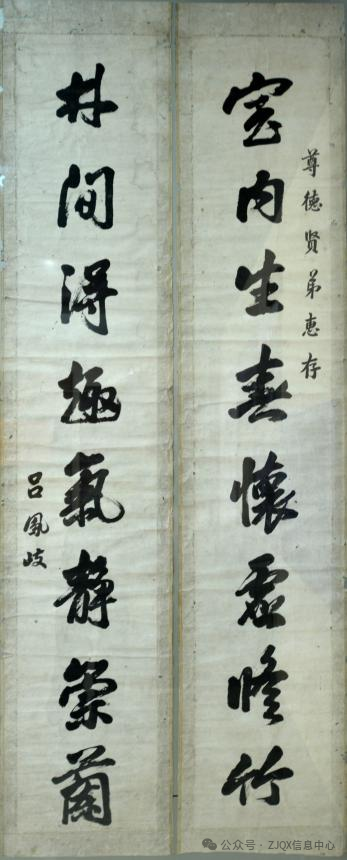 尊德贤弟惠存
室内生春懷虛修竹
林間得趣氣靜崇蘭
吕鳳岐
公众号 · ZJQX信息中心